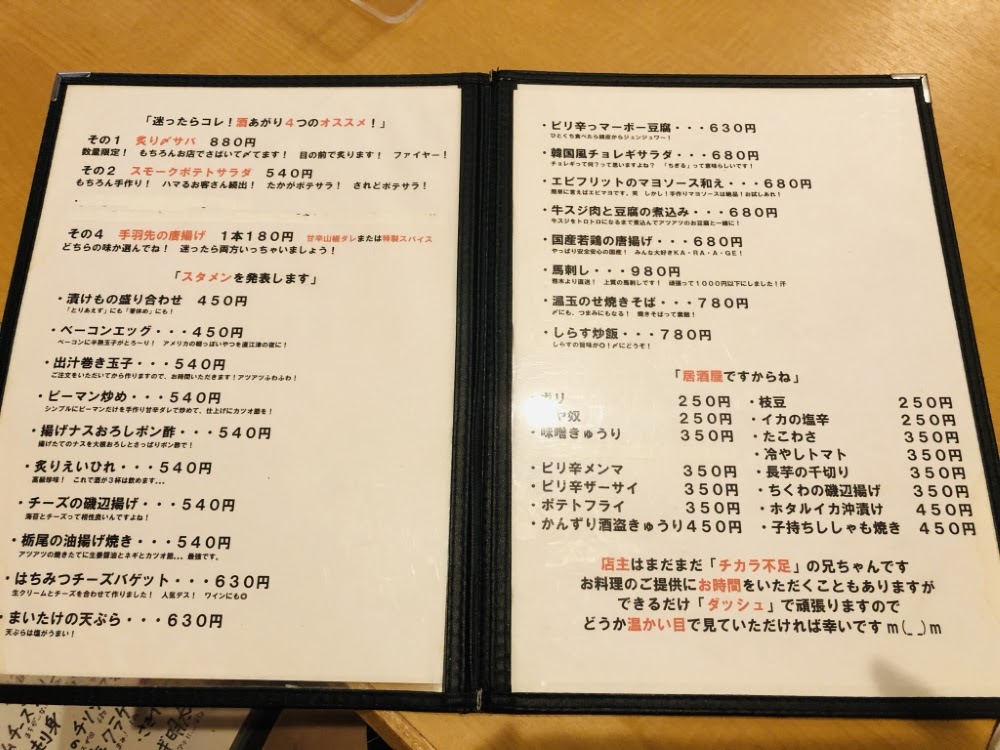 「迷ったらコレ！酒あがり４つのオススメ！」
その１　炙り〆サバ　８８０円
数量限定！　もちろんお店でさばいて〆てます！　目の前で炙ります！　ファイヤー！
その２　スモークポテトサラダ　５４０円
もちろん手作り！　ハマるお客さん続出！　たかがポテサラ！　されどポテサラ！
その４　手羽先の唐揚げ　１本１８０円　甘辛山椒ダレまたは特製スパイス
どちらの味が選んでね！　迷ったら両方いっちゃいましょう！
「スタメンを発表します」
・漬けもの盛り合わせ　４５０円
「とりあえず」にも「箸休め」にも！
・ベーコンエッグ・・・４５０円
ベーコンに半熟玉子がとろ～り！　アメリカの朝っぽいやつを直江津の夜に！
・出汁巻き玉子・・・５４０円
ご注文をいただいてから作りますので、お時間いただきます！アツアツふわふわ！
・ピーマン炒め・・・５４０円
シンプルにピーマンだけを手作り甘辛ダレで炒めて、仕上げにカツオ節を！
・揚げナスおろしポン酢・・・５４０円
揚げたてのナスを大根おろしとさっぱりポン酢で！
・炙りえいひれ・・・５４０円
高級珍味！　これで酒が３杯は飲めます…
・チーズの磯辺揚げ・・・５４０円
海苔とチーズって相性良いんですよね！
・栃尾の油揚げ焼き・・・５４０円
アツアツの焼きたてに生姜醤油とネギとカツオ節… 最強です。
・はちみつチーズバゲット・・・６３０円
生クリームとチーズを合わせて作りました！　人気デス！　ワインにも◎
・まいたけの天ぷら・・・６３０円
天ぷらは塩がうまい！
・ピリ辛っマーボー豆腐・・・６３０円
ひとくち食べたら頭皮からジュンジュワー！
・韓国風チョレギサラダ・・・６８０円
チョレギって何？って思いますよね？　「ちぎる」って意味らしいです！
・エビフリットのマヨソース和え・・・６８０円
簡単に言えばエビマヨです。笑　しかし！手作りマヨソースは絶品！お試しあれ！
・牛スジ肉と豆腐の煮込み・・・６８０円
牛スジをトロトロになるまで煮込んでアツアツのお豆腐と一緒に！
・国産若鶏の唐揚げ・・・６８０円
やっぱり安全安心の国産！　みんな大好きＫＡ・ＲＡ・ＡＧＥ！
・馬刺し・・・９８０円
熊本より直送！　上質の馬刺しです！　頑張って１０００円以下にしました！汗
・温玉のせ焼きそば・・・７８０円
〆にも、つまみにもなる！　焼きそばって素敵！
・しらす炒飯・・・７８０円
しらすの旨味が◎！〆にどうぞ！
「居酒屋ですからね」
２５０円
ヤ奴　２５０円
・味噌きゅうり　３５０円
・ピリ辛メンマ　３５０円
・ピリ辛ザーサイ　３５０円
・ポテトフライ　３５０円
・かんずり酒盗きゅうり４５０円
・枝豆　２５０円
・イカの塩辛　２５０円
・たこわさ　３５０円
・冷やしトマト　３５０円
・長芋の千切り　３５０円
・ちくわの磯辺揚げ　３５０円
・ホタルイカ沖漬け　４５０円
・子持ちししゃも焼き　４５０円
店主はまだまだ「チカラ不足」の兄ちゃんです
お料理のご提供にお時間をいただくこともありますが
できるだけ「ダッシュ」で頑張りますので
どうか温かい目で見ていただければ幸いですｍ(_ _)ｍ